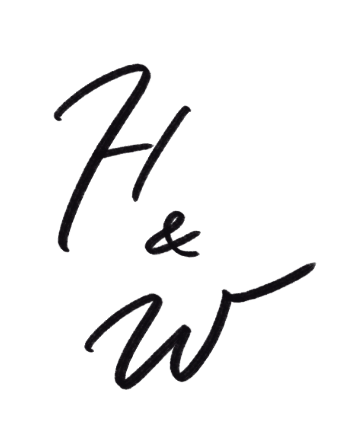 H
&
W